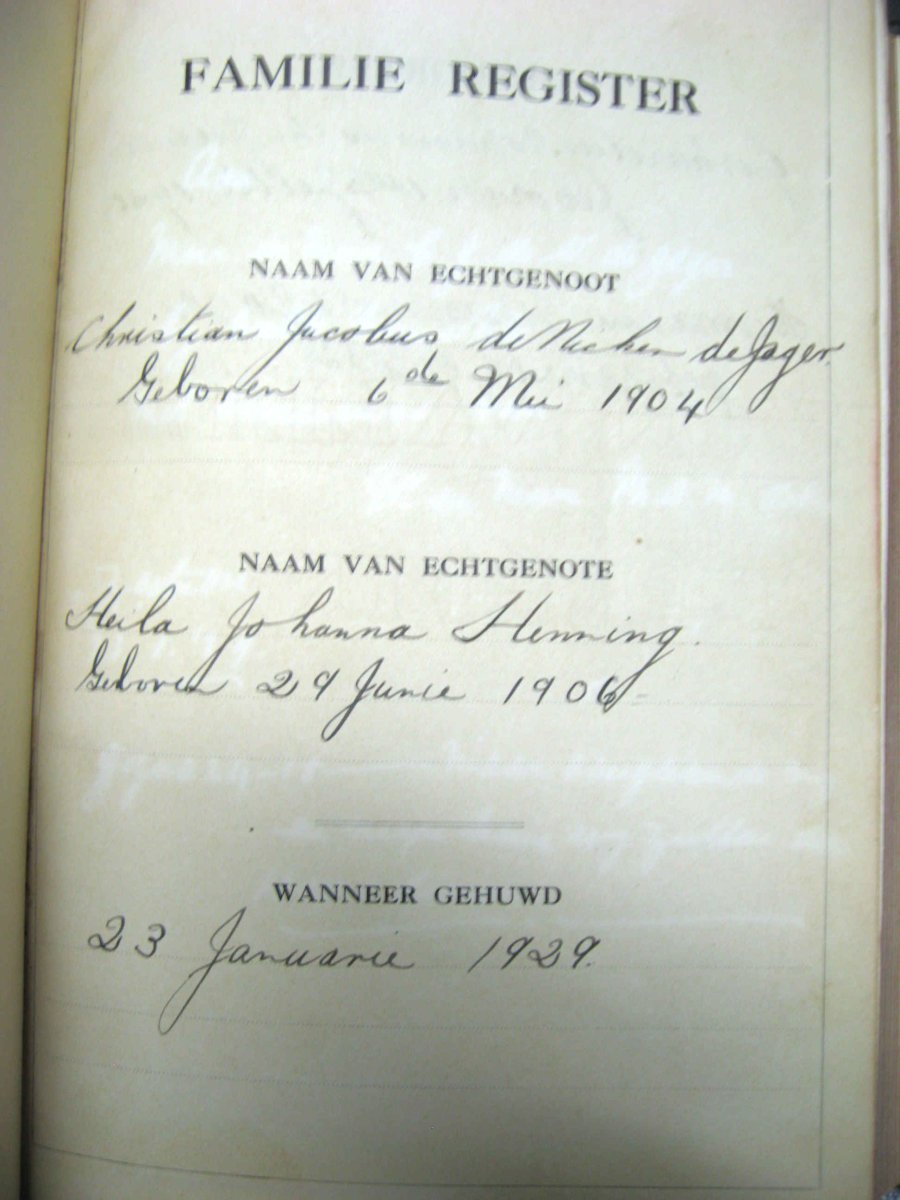 FAMILIE REGISTER
NAAM VAN ECHTGENOOT
Christian Jacobus de de Jager.
Geboren 6de Mei 1904
NAAM VAN ECHTGENOTE
Heila Johanna Henning.
Geboren 29 Junie 1906
WANNEER GEHUWD
23 Januarie 1929.